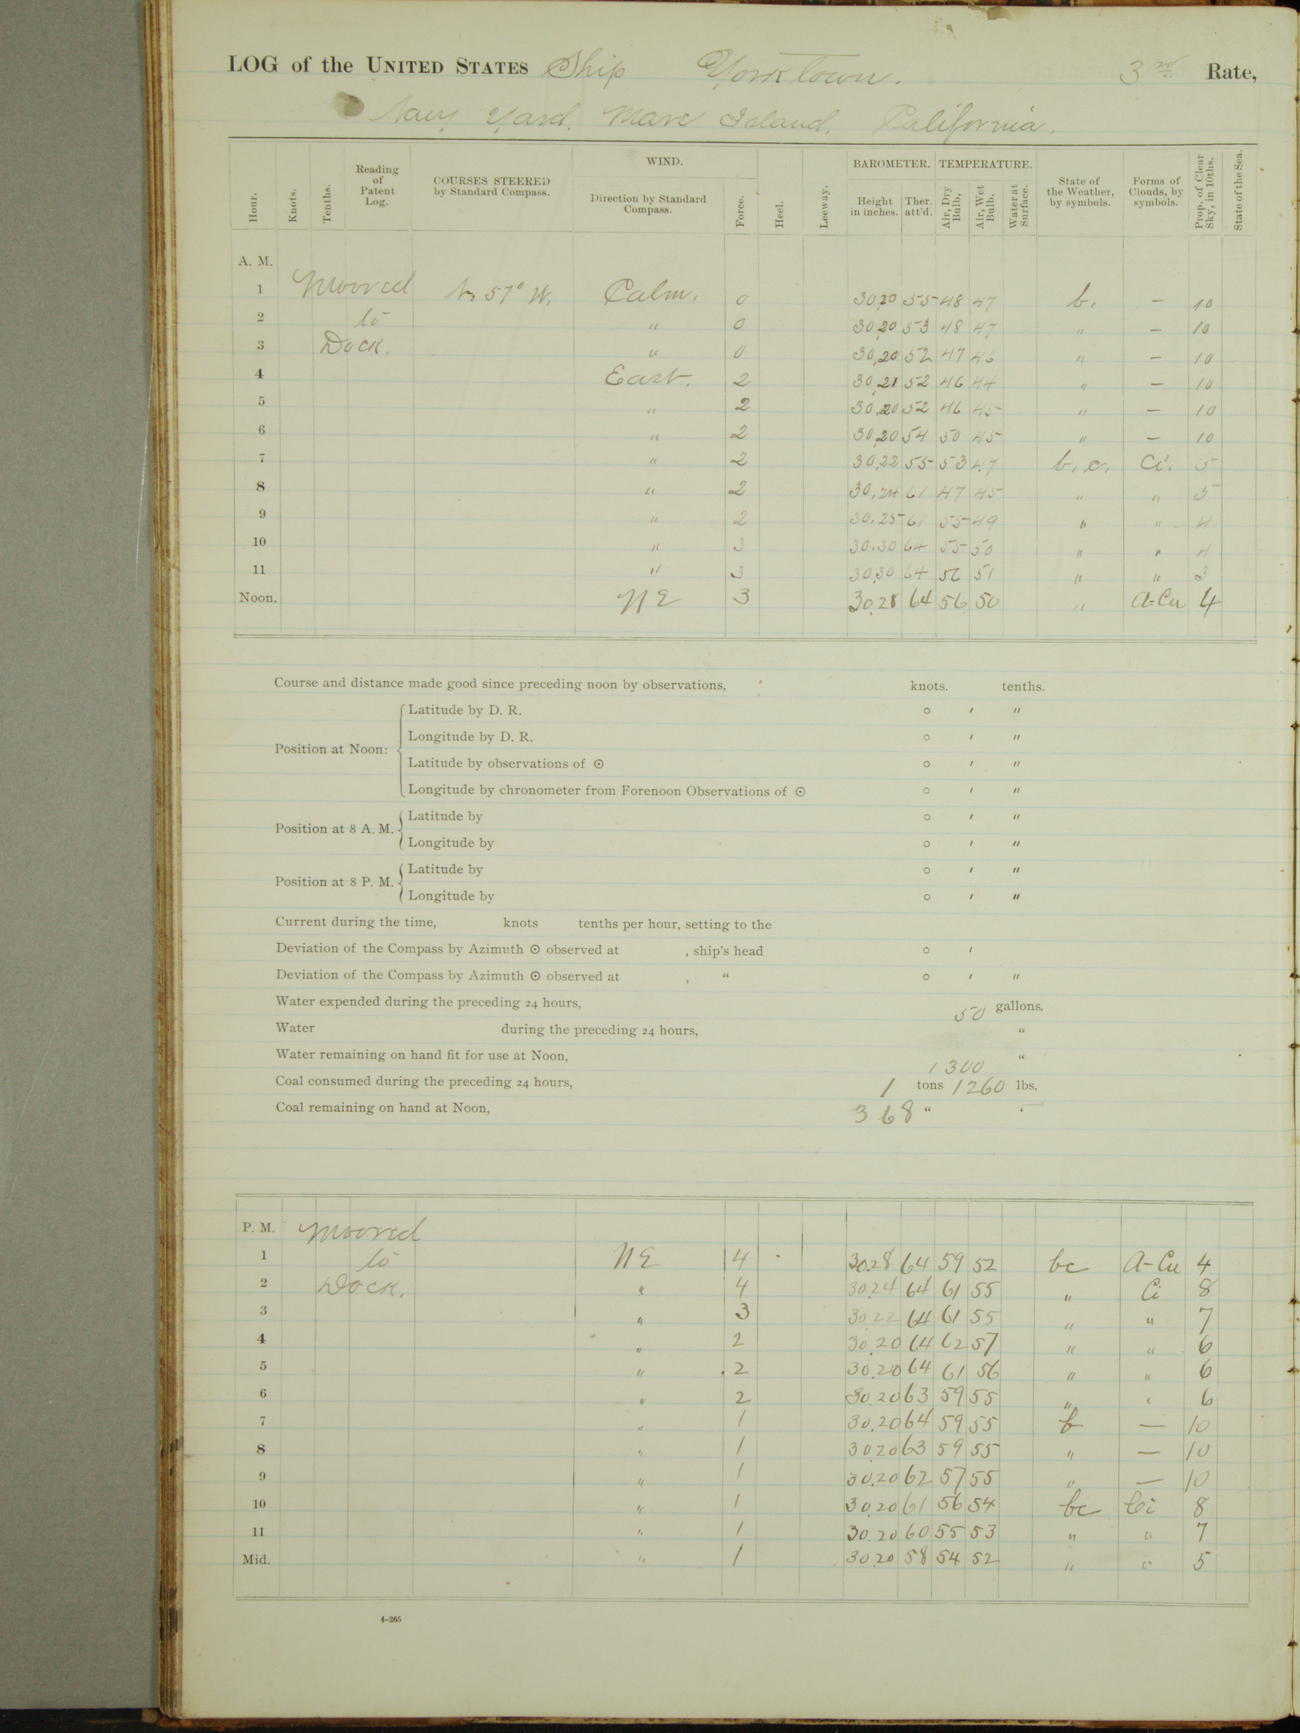 LOG of the UNITED STATES Ship Yorktown. 3rd Rate,
Navy Yard. Mare Island. California.
Hour. Knots. Tenths. Reading of Patent Log. COURSES STEERED by Standard Compass. WIND. Direction by Standard Compass. Force. Heel. Leeway. BAROMETER. Height in inches. Ther. att'd. TEMPERATURE. Air, Dry Bulb, Air, Wet Bulb. Water at Surface. State of the Weather, by symbols. Forms of Clouds, by symbols. Prop. of Clear Sky, in 10ths. State of the Sea.
A. M.
1 Moored N. 57° W. Calm. 0 30.20 55 48 47 b. — 10
2 to " 0 30.20 53 48 47 " — 10
3 Dock. " 0 30.20 52 47 46 " — 10
4 East. 2 30.21 52 46 44 " — 10
5 " 2 30.20 52 46 45 " — 10
6 " 2 30.20 54 50 45 " — 10
7 " 2 30.22 55 53 47 b.c. Ci. 5
8 " 2 30.24 61 47 45 " " 5
9 " 2 30.25 61 55 49 " " 4
10 " 3 30.30 64 55 50 " " 4
11 " 3 30.30 64 56 51 " " 3
Noon. NE 3 30.28 64 56 50 " A-Cu 4
Course and distance made good since preceding noon by observations, knots. tenths.
Position at Noon:
Latitude by D. R. ° ' "
Longitude by D. R. ° ' "
Latitude by observations of ☉ ° ' "
Longitude by chronometer from Forenoon Observations of ☉ ° ' "
Position at 8 A. M.
Latitude by ° ' "
Longitude by ° ' "
Position at 8 P. M.
Latitude by ° ' "
Longitude by ° ' "
Current during the time, knots tenths per hour, setting to the
Deviation of the Compass by Azimuth ☉ observed at , ship's head ° '
Deviation of the Compass by Azimuth ☉ observed at , " ° ' "
Water expended during the preceding 24 hours, 50 gallons.
Water during the preceding 24 hours, "
Water remaining on hand fit for use at Noon, 1300 "
Coal consumed during the preceding 24 hours, 1 tons 1260 lbs.
Coal remaining on hand at Noon, 368 " —
P. M. Moored
1 to NE 4 30.28 64 59 52 bc A-Cu 4
2 Dock. " 4 30.24 64 61 55 " Ci 8
3 " 3 30.22 64 61 55 " " 7
4 " 2 30.20 64 62 57 " " 6
5 " 2 30.20 64 61 56 " " 6
6 " 2 30.20 63 59 55 " " 6
7 " 1 30.20 64 59 55 b — 10
8 " 1 30.20 63 59 55 " — 10
9 " 1 30.20 62 57 55 " — 10
10 " 1 30.20 61 56 54 bc Ci 8
11 " 1 30.20 60 55 53 " " 7
Mid. " 1 30.20 58 54 52 " " 5
4–265